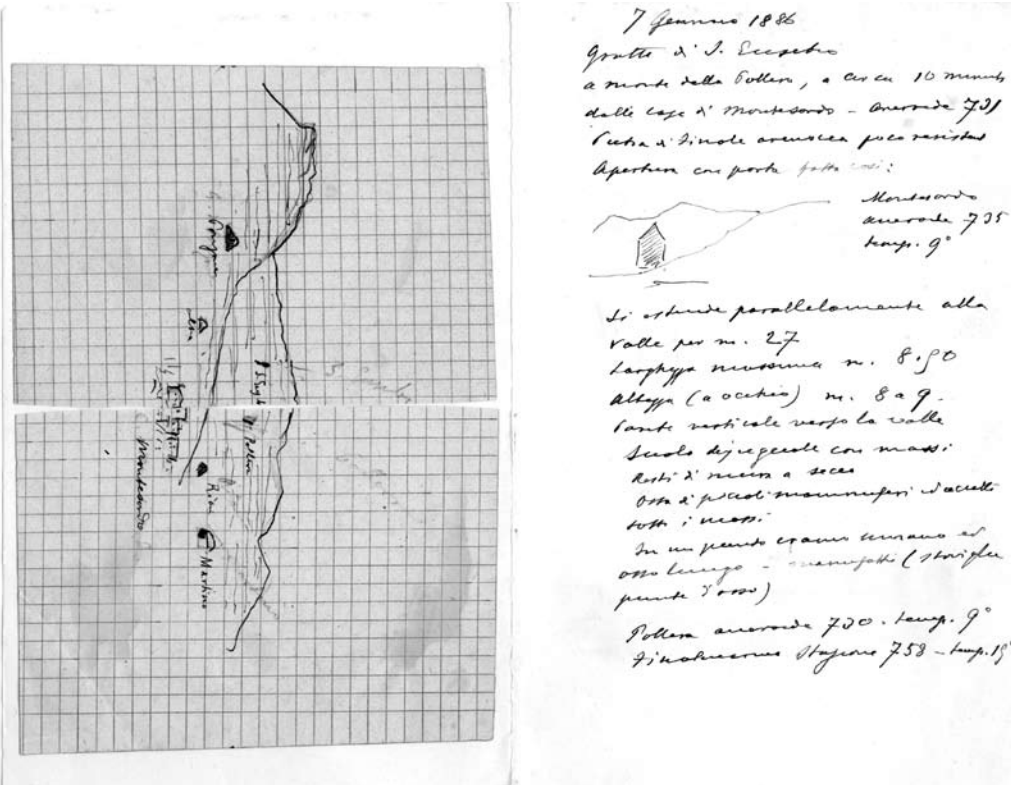 Pollera
Rian
Martino
Montesordo
7 Gennaio 1886
Grotta di S. Eusebio
a monte della Pollera, a circa 10 minuti
dalle case di Montesordo - Aneroide 731
Pietra di Finale arenacea poco resistente
Apertura con porta fatta così:
Montesordo
aneroide 735
temp. 9°
Si estende parallelamente alla
valle per m. 27
Larghezza massima m. 8.50
Altezza (a occhio) m. 8 a 9.
Parete verticale verso la valle
Suolo diseguale con massi
Resti di muro a secco
Ossa di piccoli mammiferi ed uccelli
sotto i massi
In un punto cranio umano ed
osso lungo - manufatti (stoviglie
punte d'osso)
Pollera aneroide 730. temp. 9°
Finalmarina Stazione 758 - temp. 15°